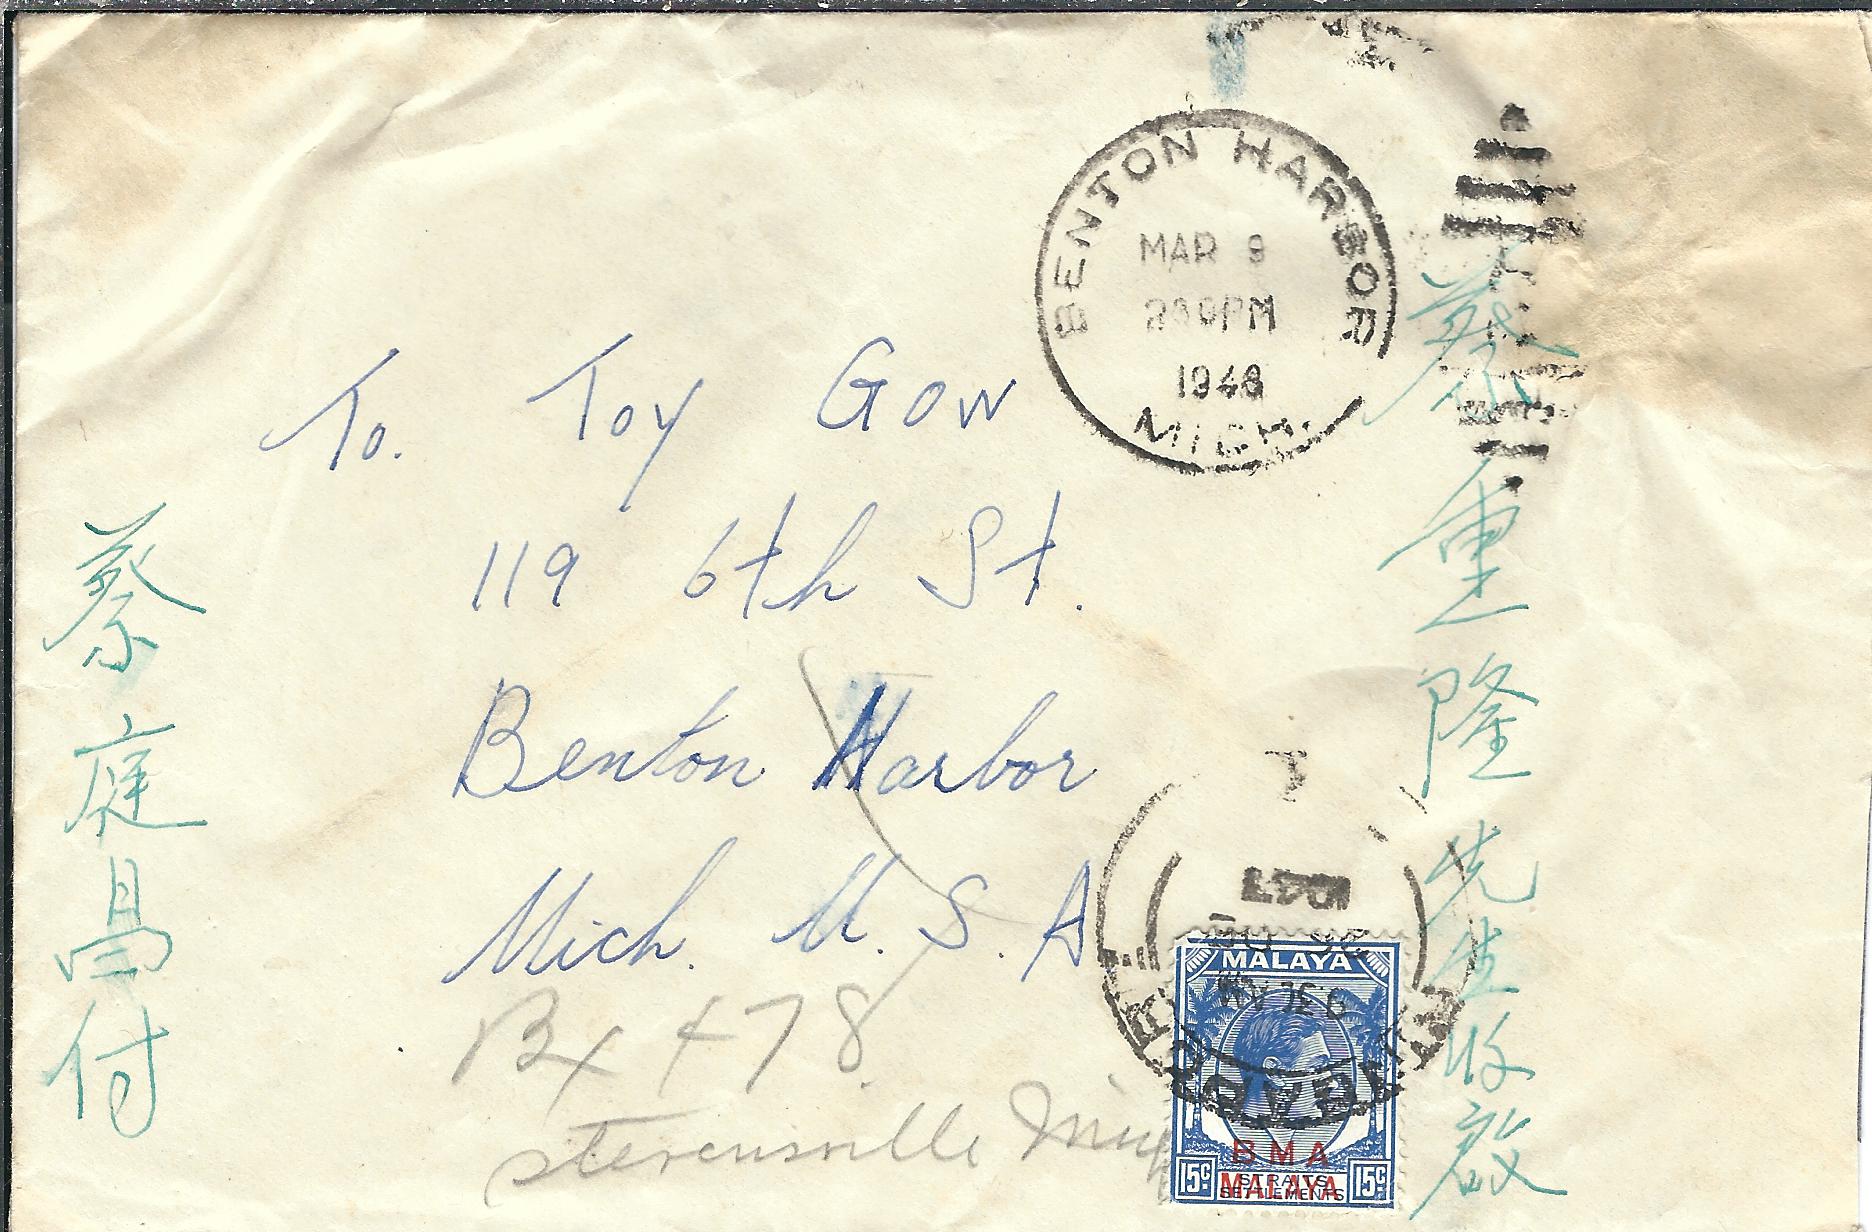 BENTON HARBOR
MAR 9
230PM
MICH.
To. Toy Gow
119 6th St.
Benton Harbor
Mich. U. S. A
Bx 478
Stevensville
蔡重隆先生收啟
蔡庭昌付
MALAYA
BMA
STRAITS
SETTLEMENTS
MALAYA
15c 15c